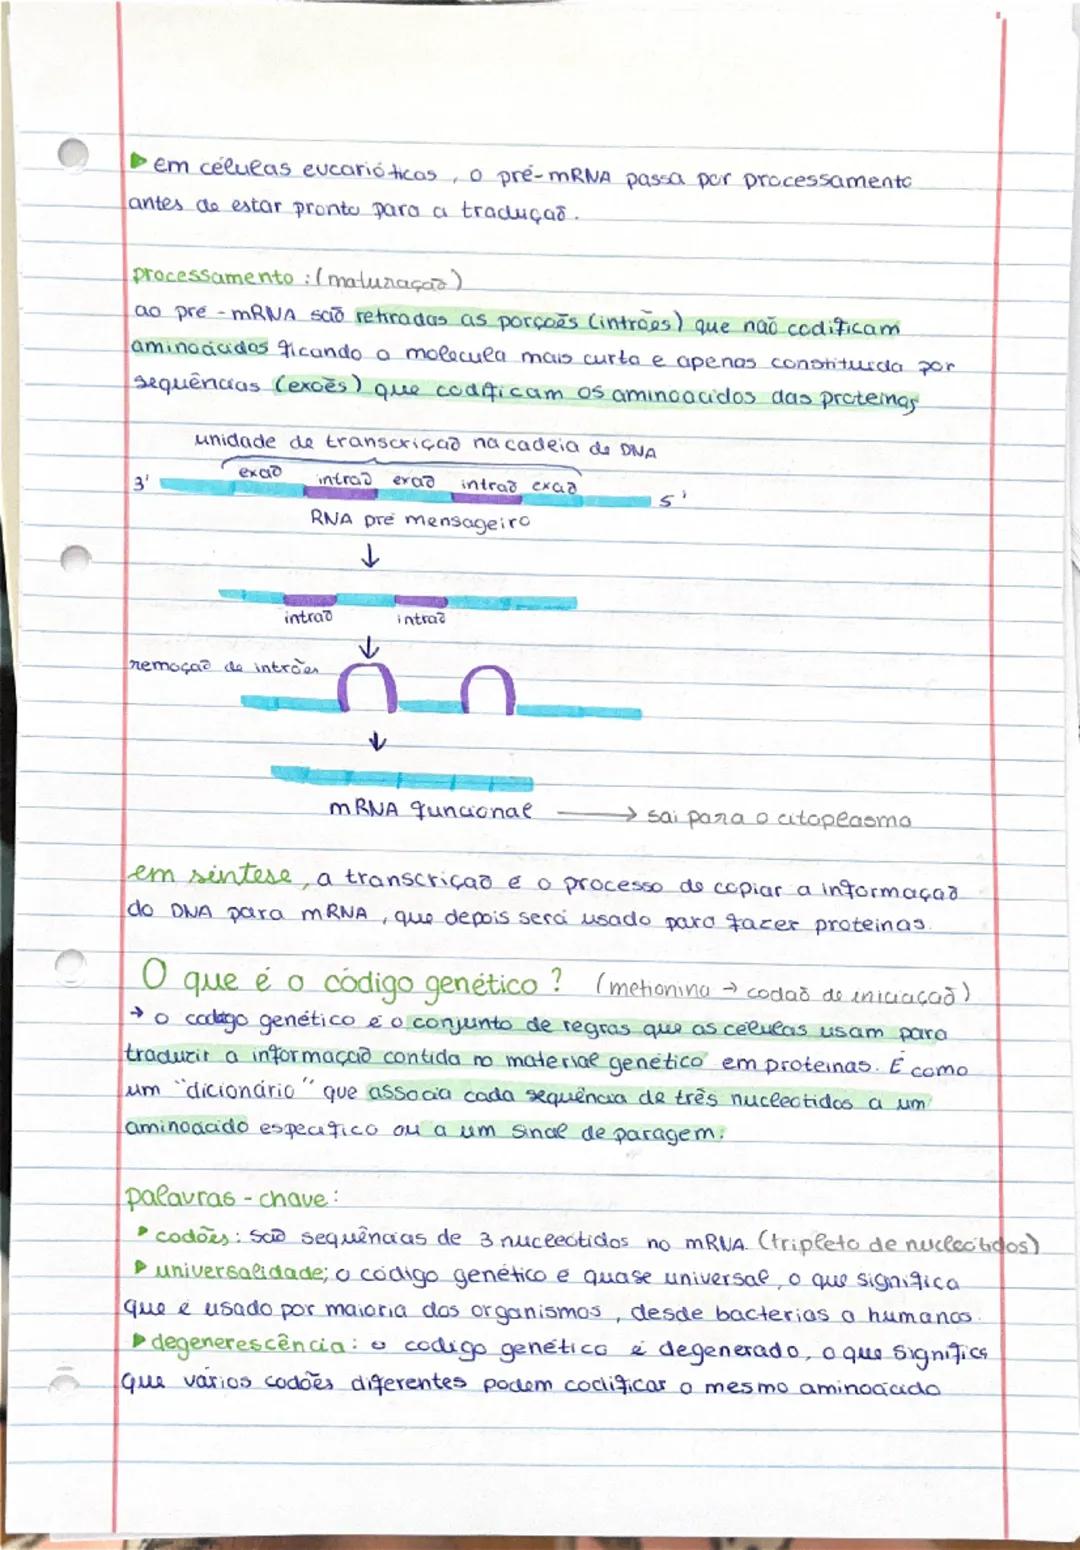 em células eucarióticas, o pré-mRNA passa por processamento
antes de estar pronto para a tradução.
processamento: (maturação)
ao pré-mRNA são retiradas as porções (intrões) que não codificam
aminoácidos ficando a molecula mais curta e apenas constituida por
sequências (exões) que codificam os aminoacidos das proteinas
unidade de transcrição na cadeia de DNA
exão intrão exão intrão exão
3' 5'
RNA pré mensageiro
↓
intrão intrão
↓
remoção de intrões
↓
mRNA funcional → sai para o citoplasma
em síntese, a transcrição é o processo de copiar a informação
do DNA para mRNA, que depois será usado para fazer proteinas.
O que é o código genético? (metionina → codão de iniciação)
→ o codigo genético é o conjunto de regras que as celulas usam para
traduzir a informação contida no material genético em proteinas. É como
um "dicionário" que associa cada sequência de três nucleotidos a um
aminoacido especifico ou a um sinal de paragem.
palavras-chave:
codões: são sequências de 3 nucleotidos no mRNA. (tripleto de nucleotidos)
universalidade; o código genético e quase universal, o que significa
que é usado por maioria dos organismos, desde bacterias a humanos.
degenerescência: o codigo genético é degenerado, o que significa
que vários codões diferentes podem codificar o mesmo aminoácido